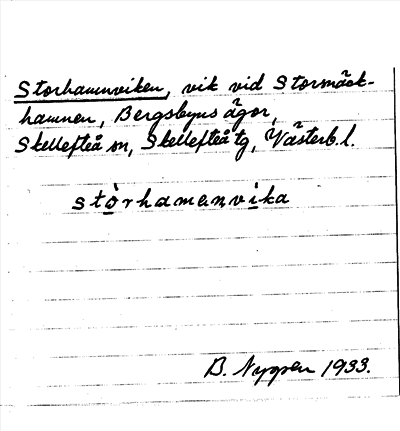 Storhamnviken, vik vid Stormäck-
hamnen, Bergsbyns ägor,
Skellefteå sn, Skellefteå tg, Västerb. l.
stòrhamenvìka
B. Nygren 1933.